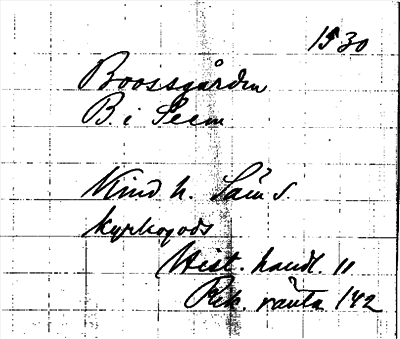 1530
Boossgården
B. i Seem
Kind h. Säm s.
kyrkogods
Hist. handl. 11
Rek. ränta 142